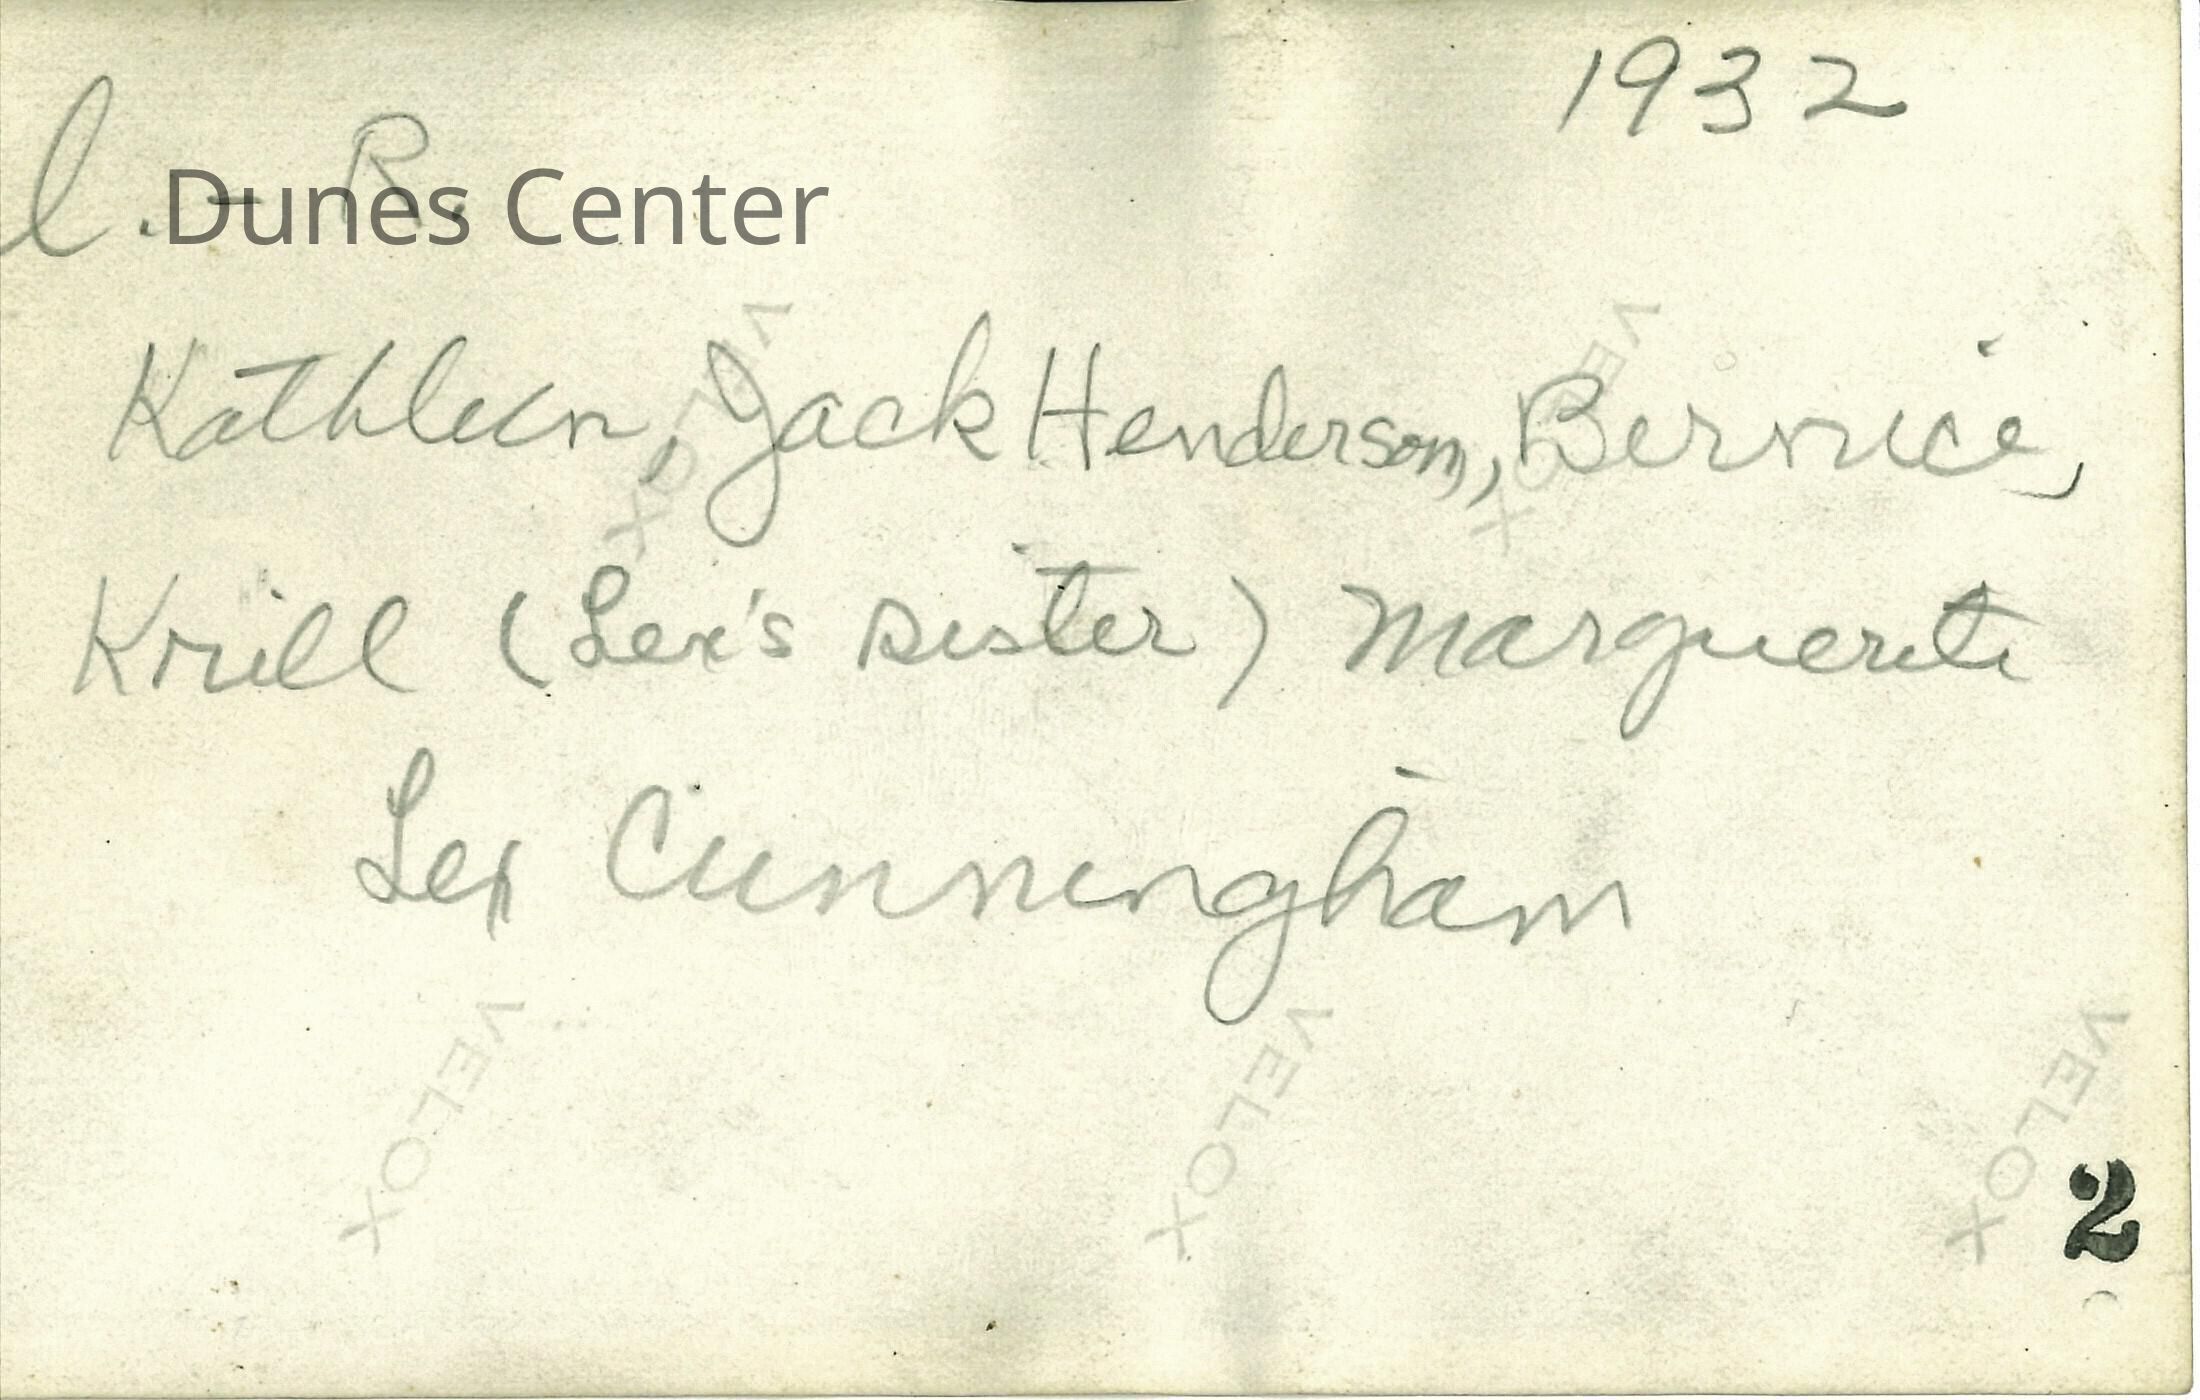 1932
l. - R.
Dunes Center
Kathleen, Jack Henderson, Bernice,
Krill (Lex's sister) Marguerite
Lex Cunningham
VELOX
VELOX
VELOX
VELOX
VELOX
2